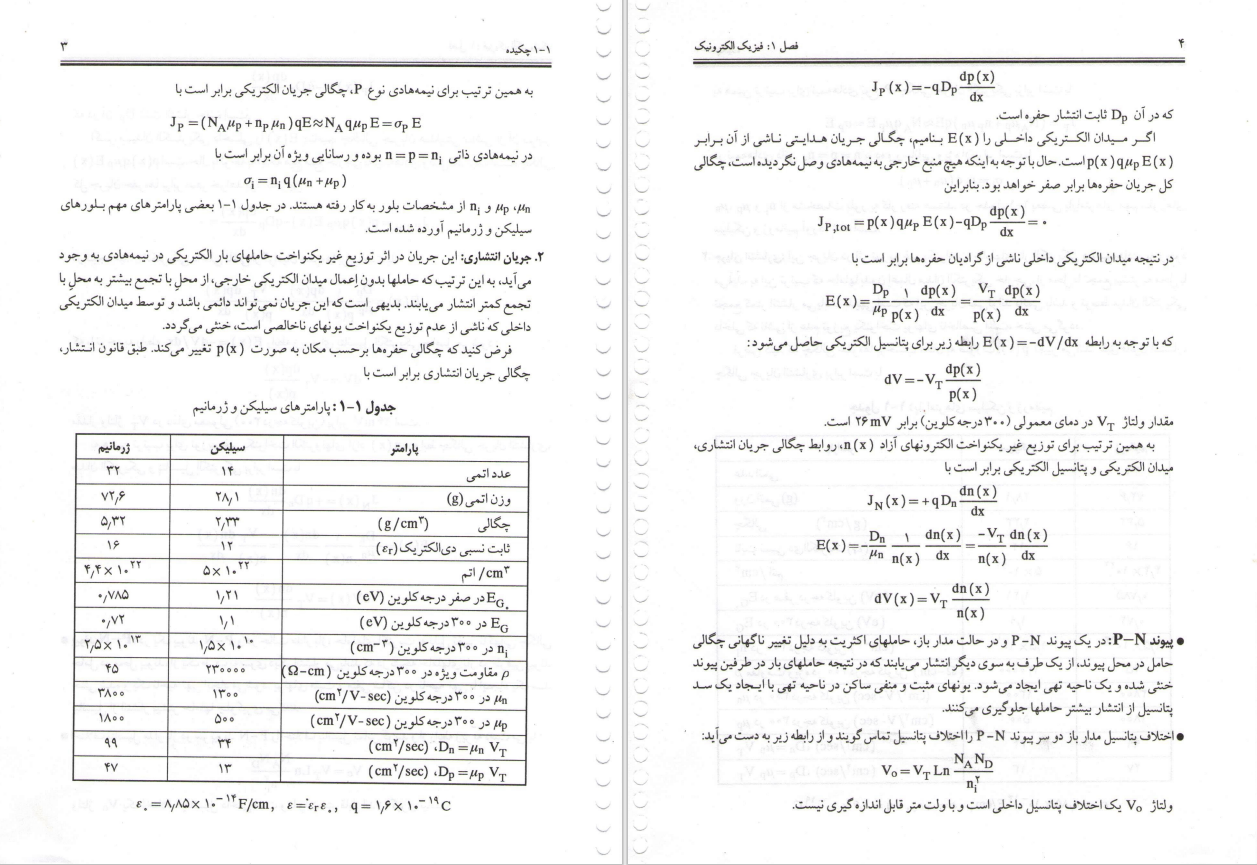 ۳
۱-۱ چکیده
به همین ترتیب برای نیمه‌هادی نوع P، چگالی جریان الکتریکی برابر است با
J_P = (N_A μ_P + n_P μ_n) qE ≈ N_A q μ_P E = σ_P E
در نیمه‌هادی ذاتی n = p = n_i بوده و رسانایی ویژه آن برابر است با
σ_i = n_i q (μ_n + μ_p)
μ_n، μ_p و n_i از مشخصات بلور به کار رفته هستند. در جدول ۱-۱ بعضی پارامترهای مهم بلورهای
سیلیکن و ژرمانیم آورده شده است.
۲. جریان انتشاری: این جریان در اثر توزیع غیر یکنواخت حاملهای بار الکتریکی در نیمه‌هادی به وجود
می‌آید، به این ترتیب که حاملها بدون إعمال میدان الکتریکی خارجی، از محلِ با تجمع بیشتر به محلِ با
تجمع کمتر انتشار می‌یابند. بدیهی است که این جریان نمی‌تواند دائمی باشد و توسط میدان الکتریکی
داخلی که ناشی از عدم توزیع یکنواخت یونهای ناخالصی است، خنثی می‌گردد.
فرض کنید که چگالی حفره‌ها برحسب مکان به صورت p(x) تغییر می‌کند. طبق قانون انتشار،
چگالی جریان انتشاری برابر است با
جدول ۱-۱: پارامترهای سیلیکن و ژرمانیم
پارامتر سیلیکن ژرمانیم
عدد اتمی ۱۴ ۳۲
وزن اتمی (g) ۲۸٫۱ ۷۲٫۶
چگالی (g/cm³) ۲٫۳۳ ۵٫۳۲
ثابت نسبی دی‌الکتریک (ε_r) ۱۲ ۱۶
اتم /cm³ ۵×۱۰^۲۲ ۴٫۴×۱۰^۲۲
E_G۰ در صفر درجه کلوین (eV) ۱٫۲۱ ۰٫۷۸۵
E_G در ۳۰۰ درجه کلوین (eV) ۱٫۱ ۰٫۷۲
n_i در ۳۰۰ درجه کلوین (cm^-۳) ۱٫۵×۱۰^۱۰ ۲٫۵×۱۰^۱۳
ρ مقاومت ویژه در ۳۰۰ درجه کلوین (Ω-cm) ۲۳۰۰۰۰ ۴۵
μ_n در ۳۰۰ درجه کلوین (cm²/V-sec) ۱۳۰۰ ۳۸۰۰
μ_p در ۳۰۰ درجه کلوین (cm²/V-sec) ۵۰۰ ۱۸۰۰
D_n = μ_n V_T، (cm²/sec) ۳۴ ۹۹
D_p = μ_p V_T، (cm²/sec) ۱۳ ۴۷
ε_۰ = ۸٫۸۵ × ۱۰^-۱۴ F/cm, ε = ε_r ε_۰, q = ۱٫۶ × ۱۰^-۱۹ C
۴
فصل ۱: فیزیک الکترونیک
J_P(x) = -qD_P dp(x)/dx
که در آن D_P ثابت انتشار حفره است.
اگر میدان الکتریکی داخلی را E(x) بنامیم، چگالی جریان هدایتی ناشی از آن برابر
p(x)qμ_P E(x) است. حال با توجه به اینکه هیچ منبع خارجی به نیمه‌هادی وصل نگردیده است، چگالی
کل جریان حفره‌ها برابر صفر خواهد بود. بنابراین
J_P,tot = p(x)qμ_P E(x) - qD_P dp(x)/dx = ۰
در نتیجه میدان الکتریکی داخلی ناشی از گرادیان حفره‌ها برابر است با
E(x) = D_P/μ_P ۱/p(x) dp(x)/dx = V_T/p(x) dp(x)/dx
که با توجه به رابطه E(x) = -dV/dx رابطه زیر برای پتانسیل الکتریکی حاصل می‌شود:
dV = -V_T dp(x)/p(x)
مقدار ولتاژ V_T در دمای معمولی (۳۰۰ درجه کلوین) برابر ۲۶ mV است.
به همین ترتیب برای توزیع غیر یکنواخت الکترونهای آزاد n(x)، روابط چگالی جریان انتشاری،
میدان الکتریکی و پتانسیل الکتریکی برابر است با
J_N(x) = +qD_n dn(x)/dx
E(x) = -D_n/μ_n ۱/n(x) dn(x)/dx = -V_T/n(x) dn(x)/dx
dV(x) = V_T dn(x)/n(x)
● پیوند P-N: در یک پیوند P-N و در حالت مدار باز، حاملهای اکثریت به دلیل تغییر ناگهانی چگالی
حامل در محل پیوند، از یک طرف به سوی دیگر انتشار می‌یابند که در نتیجه حاملهای بار در طرفین پیوند
خنثی شده و یک ناحیه تهی ایجاد می‌شود. یونهای مثبت و منفی ساکن در ناحیه تهی با ایجاد یک سد
پتانسیل از انتشار بیشتر حاملها جلوگیری می‌کنند.
● اختلاف پتانسیل مدار باز دو سر پیوند P-N را اختلاف پتانسیل تماس گویند و از رابطه زیر به دست می‌آید:
V_o = V_T Ln N_A N_D/n_i²
ولتاژ V_o یک اختلاف پتانسیل داخلی است و با ولت متر قابل اندازه گیری نیست.